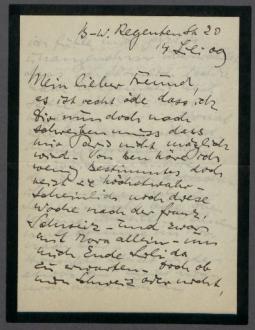 B-W. Regentenstr 20
14 Juli 09
Mein lieber Freund,
es ist recht öde dass ich
Dir nun doch noch
schreiben muss dass
mir Paris nicht möglich
wird - Von Ben höre ich
wenig Bestimmtes doch
reist er höchstwahr-
scheinlich noch diese
Woche nach der franz.
Schweiz - und zwar
mit Nora allein - um
auch Ende Juli da
zu erwarten. Doch ob
nun Schweiz oder nicht,